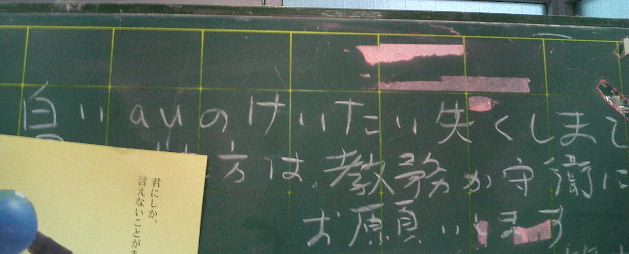 白いauのけいたい失くしまし
方は、教務か守衛に
お願いします
君にしか、
言えないことがあ